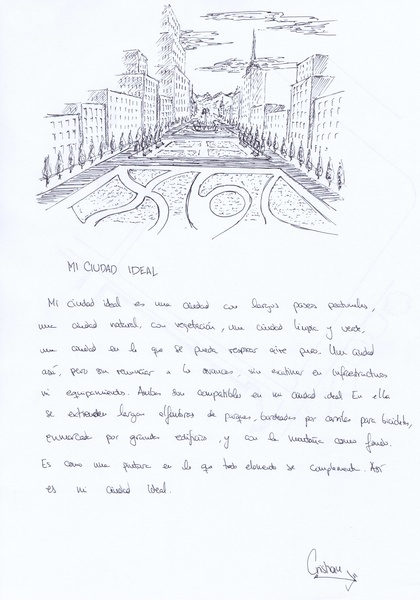 MI CIUDAD IDEAL
Mi ciudad ideal es una ciudad con largos paseos peatonales,
una ciudad natural, con vegetación, una ciudad limpia y verde,
una ciudad en la que se pueda respirar aire puro. Una ciudad
así, pero sin renunciar a los avances, sin escatimar en infraestructuras
ni equipamientos. Ambas son compatibles en mi ciudad ideal. En ella
se extienden largas alfombras de parques, bordeadas por carriles para bicicletas,
enmarcada por grandes edificios, y con la montaña como fondo.
Es como una pintura en la que todo elemento se complementa. Así
es mi ciudad ideal.
Cristian